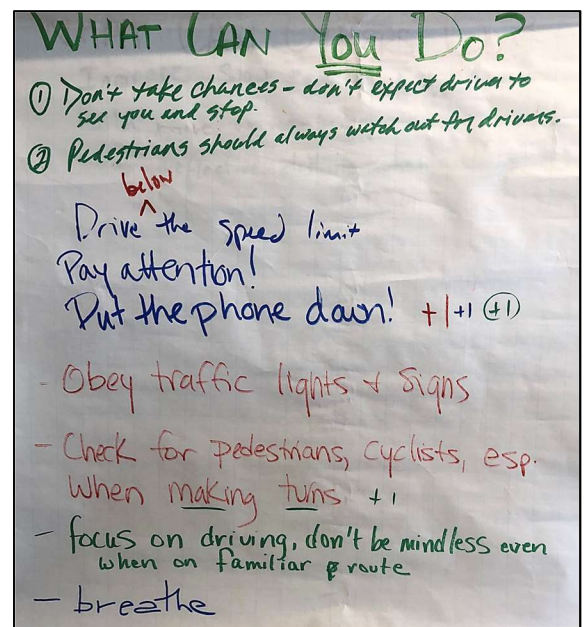 WHAT CAN YOU DO?
① Don't take chances – don't expect driver to
see you and stop.
② Pedestrians should always watch out for drivers.
below
Drive ^ the speed limit
Pay attention!
Put the phone down! +1 +1 +1
- Obey traffic lights & signs
- Check for pedestrians, cyclists, esp.
when making turns +1
- focus on driving, don't be mindless even
when on familiar route
- breathe